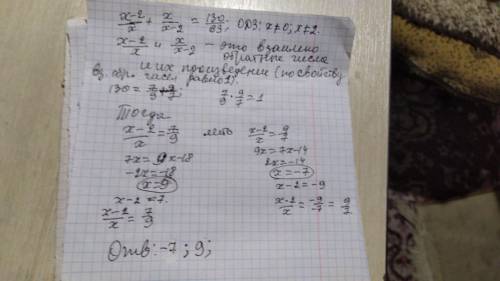 x-2/x + x/x-2 = 130/63; ОДЗ: x≠0; x≠2.
x-2/x и x/x-2 - это взаимно
обратные числа
и их произведение (по свойству
вз. обр. чисел равно 1).
130 = 7/9 + 9/7; 7/9 · 9/7 = 1
Тогда
x-2/x = 7/9 либо x-2/x = 9/7
7x = 9x-18 9x = 7x-14
-2x = -18 2x = -14
x=9 x = -7
x-2 = 7. x-2 = -9
x-2/x = 7/9 x-2/x = -9/-7 = 9/7
Отв: -7; 9;